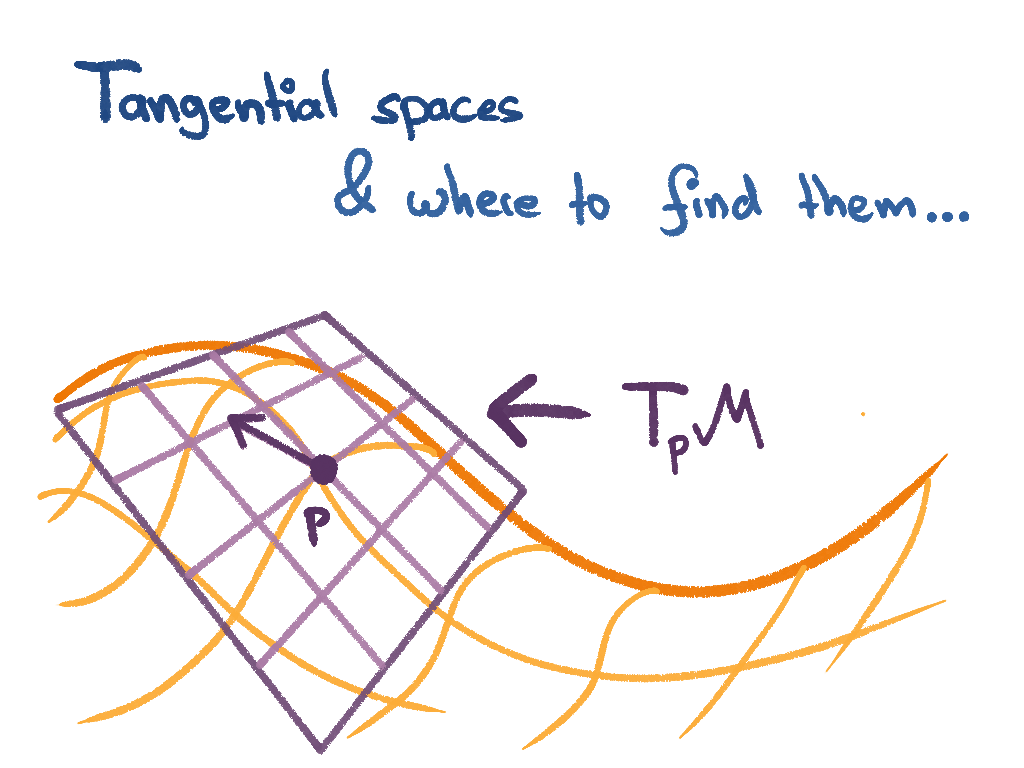 Tangential spaces
& where to find them...
TpM
p